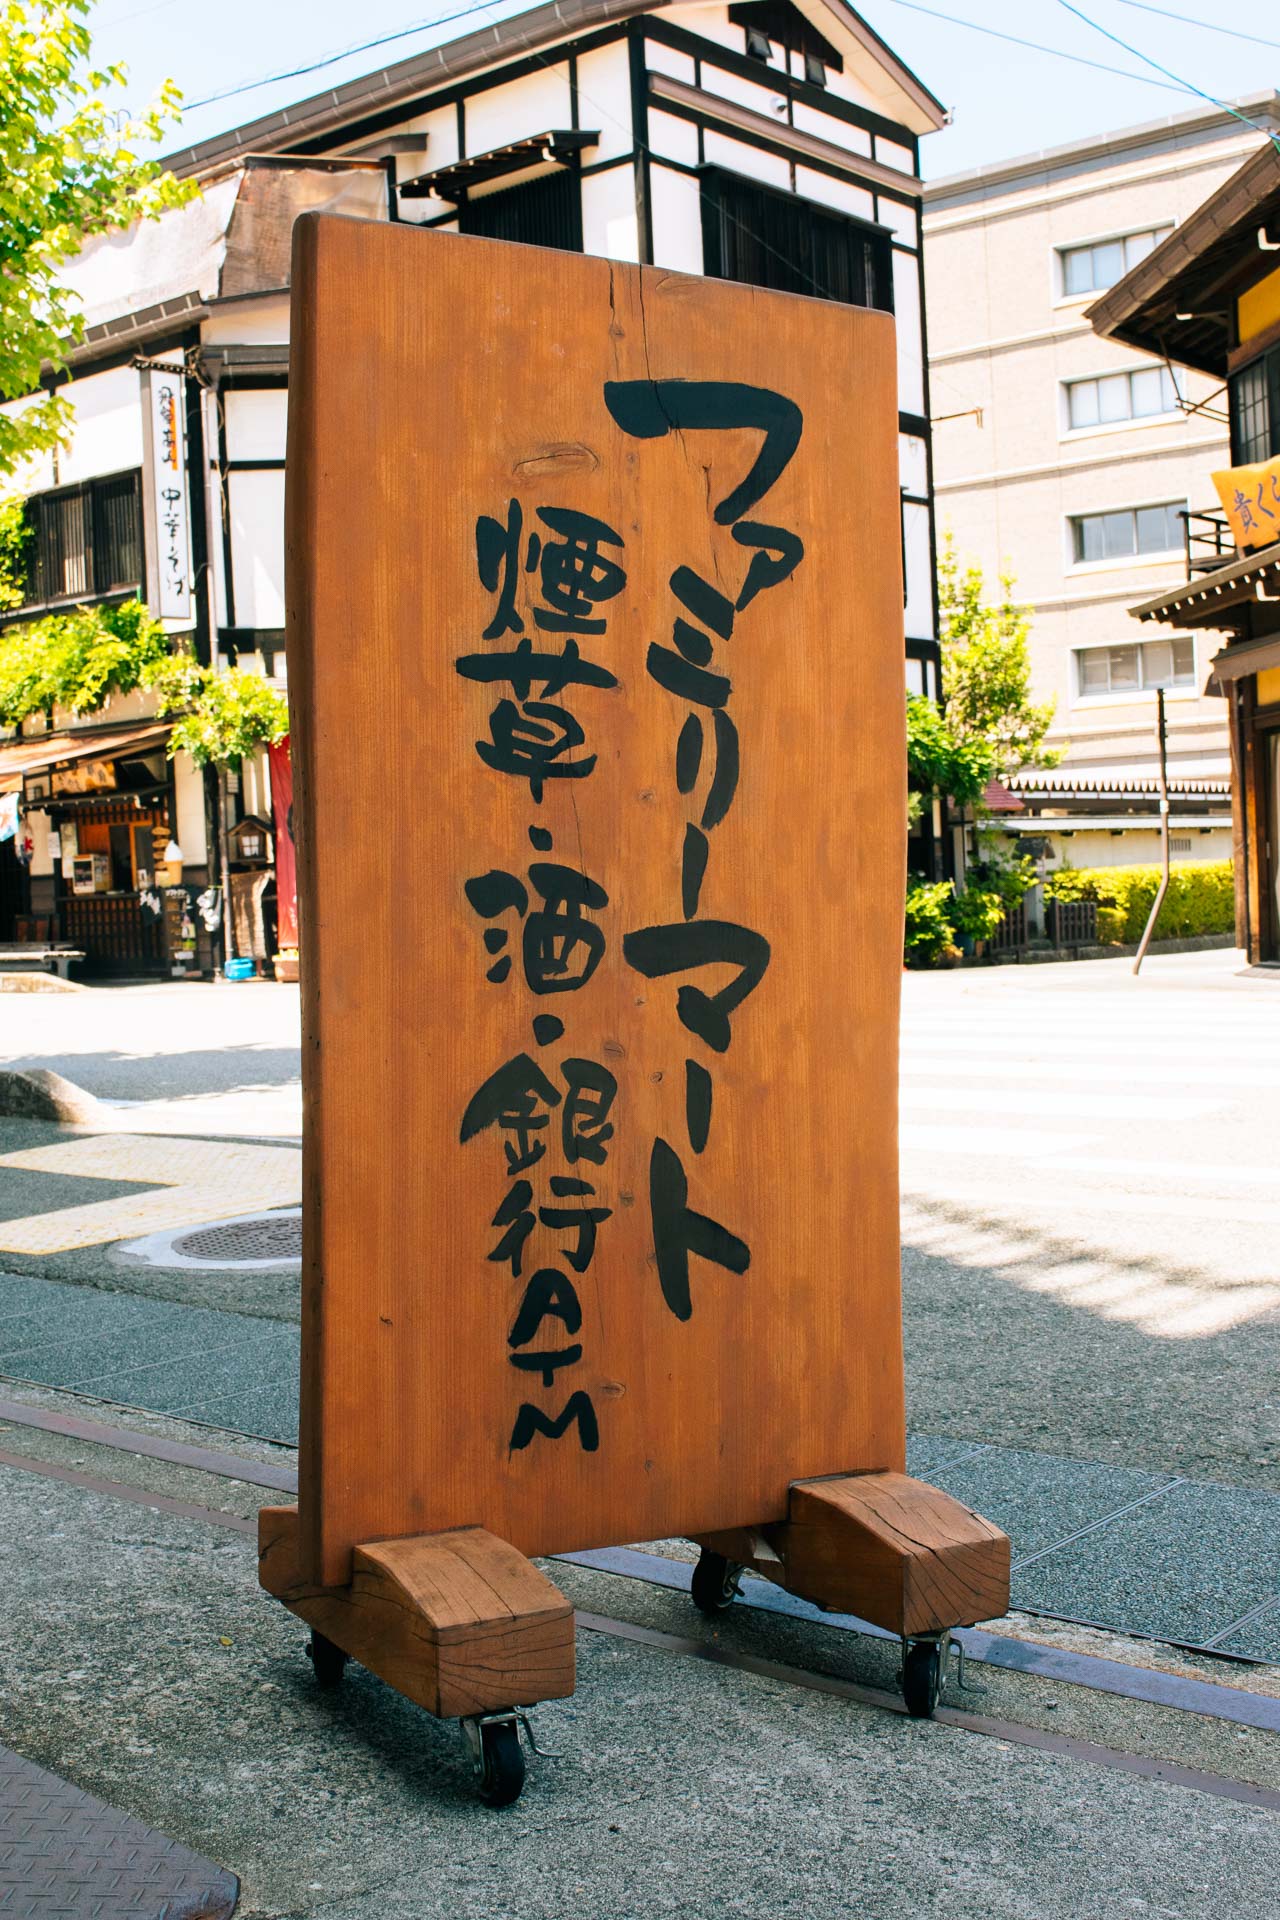 ファミリーマート
煙草・酒・銀行ATM
中華そば
貴くら